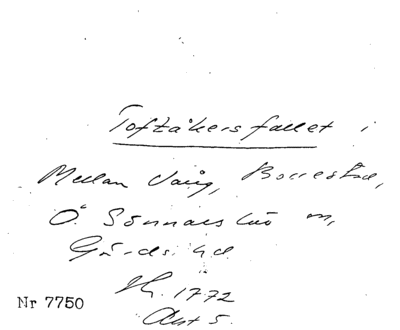 Toftåkersfallet i
Mellan Vång, Borrestad,
Ö. Sönnarslöv m,
Gärds hd
1772
Akt 5.
Nr 7750